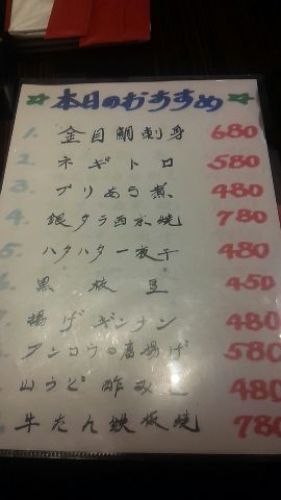 ☆本日のおすすめ☆
1. 金目鯛刺身 680
2. ネギトロ 580
3. ブリあら煮 480
4. 銀タラ西京焼 780
5. ハタハタ一夜干 480
6. 黒枝豆 450
7. 揚げギンナン 480
アンコウの唐揚げ 580
山うど酢みそ 480
牛たん鉄板焼 780